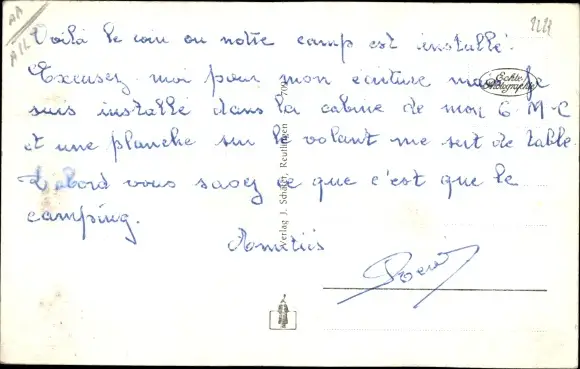 AA
A/L
Voilà le coin ou notre camp est installé.
Excusez moi pour mon écriture mais je
suis installé dans la cabine de mon G. M-C
et une planche sur le volant me sert de table.
D'abord vous savez ce que c'est que le
camping.
Amitiés
Echte Photographie
Verlag J. Schäfer, Reutlingen